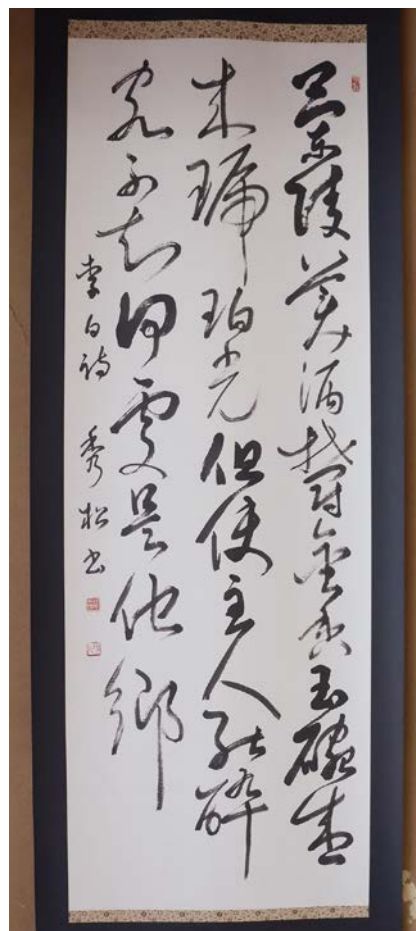 蘭陵美酒欝金香玉碗盛
来琥珀光但使主人能酔
客不知何處是他郷
李白詩 秀松書